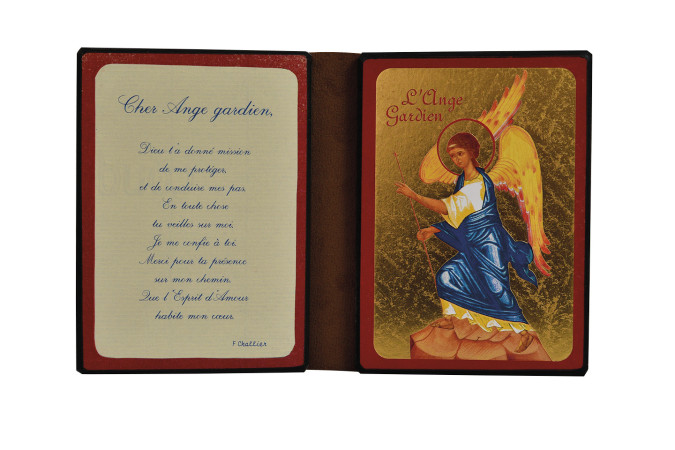 Cher Ange gardien,
Dieu t'a donné mission
de me protéger,
et de conduire mes pas.
En toute chose
tu veilles sur moi,
Je me confie à toi.
Merci pour ta présence
sur mon chemin.
Que l'Esprit d'Amour
habite mon cœur.
F. Challier
L'Ange
Gardien